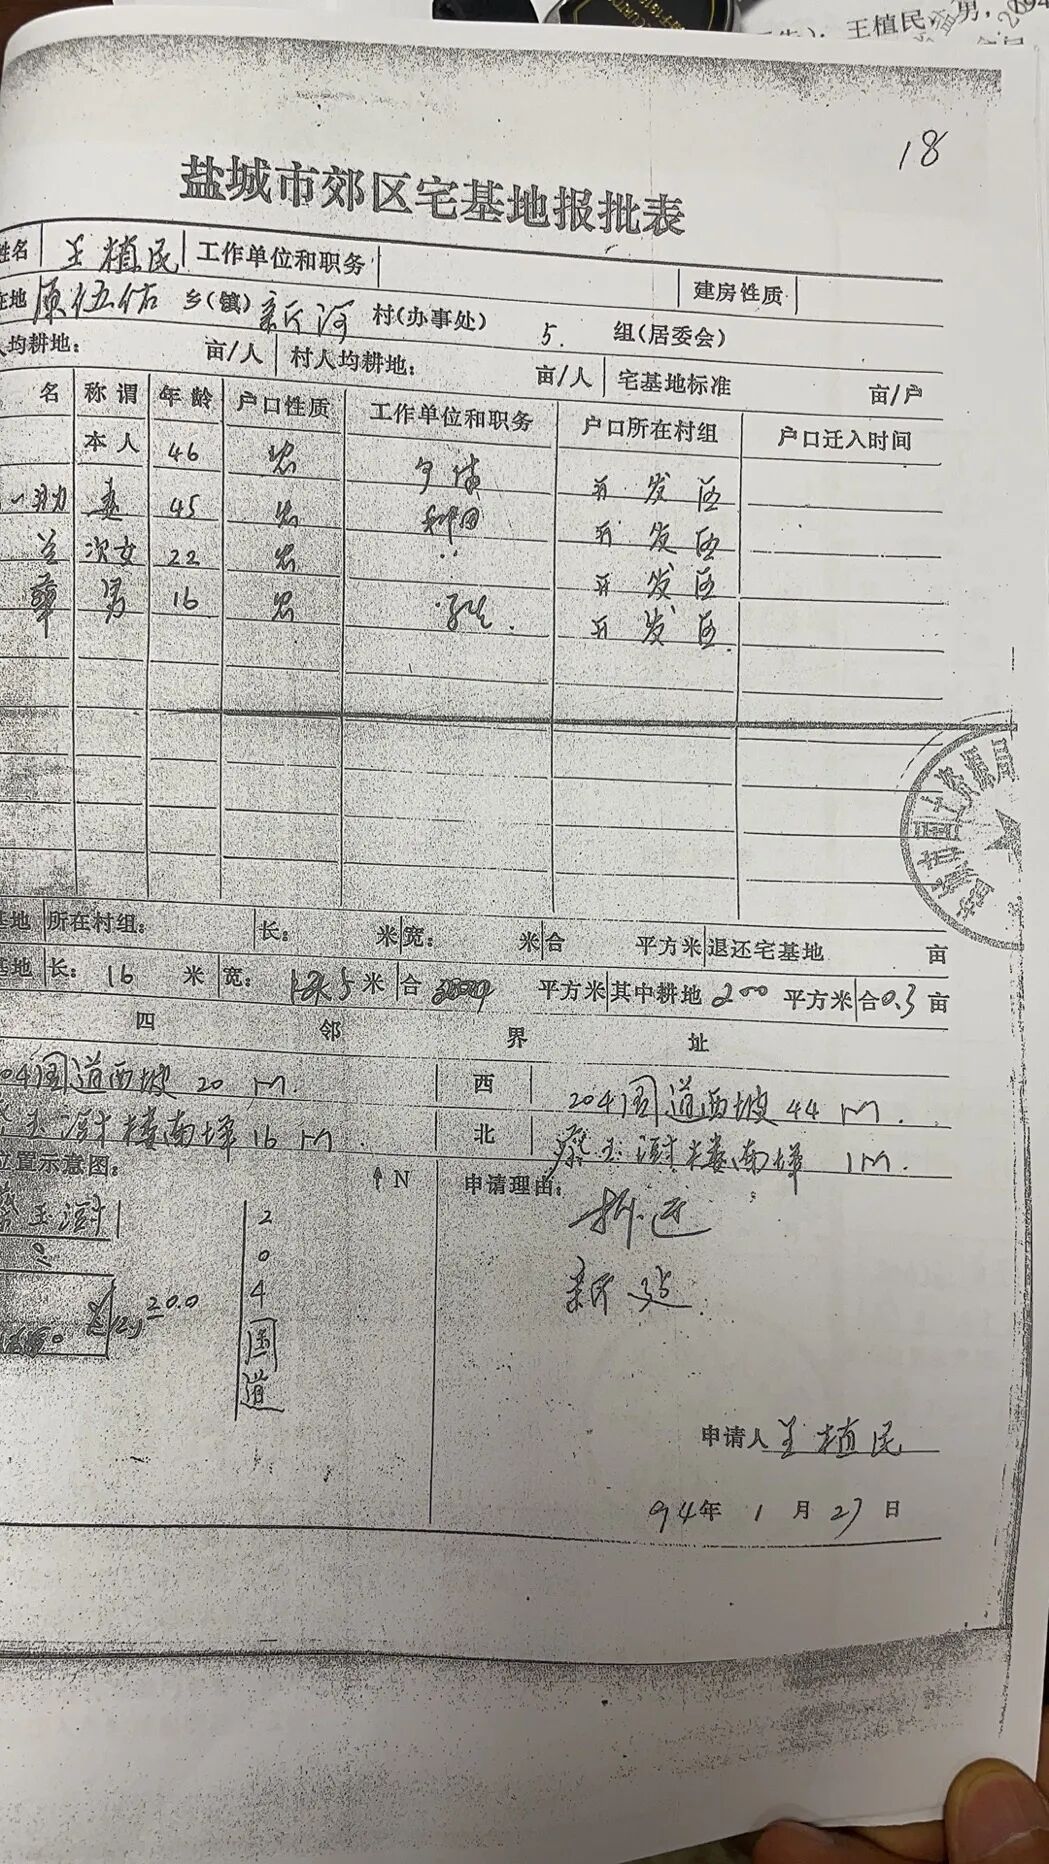 王植民 男，194
18
盐城市郊区宅基地报批表
姓名 王植民 工作单位和职务 建房性质
在地 原伍佑 乡(镇) 新河 村(办事处) 5. 组(居委会)
人均耕地： 亩/人 村人均耕地： 亩/人 宅基地标准 亩/户
名 称谓 年龄 户口性质 工作单位和职务 户口所在村组 户口迁入时间
本人 46 农 开发区
妻 45 农 种田 开发区
兰 次女 22 农 〃 开发区
男 16 农 学生. 开发区.
国土资源局
基地 所在村组： 长： 米 宽： 米 合 平方米 退还宅基地 亩
基地 长：16 米 宽： 米 合 平方米 其中耕地 200 平方米 合 0.3 亩
四 邻 界 址
204国道西坡 20 M. 西 204国道西坡 44 M.
蔡玉澍楼南墚 16 M. 北 蔡玉澍楼南墚 1M.
位置示意图： ↑N 申请理由：
蔡玉澍 204国道 拆迁
20.0 新建
申请人 王植民
94年 1 月 27 日